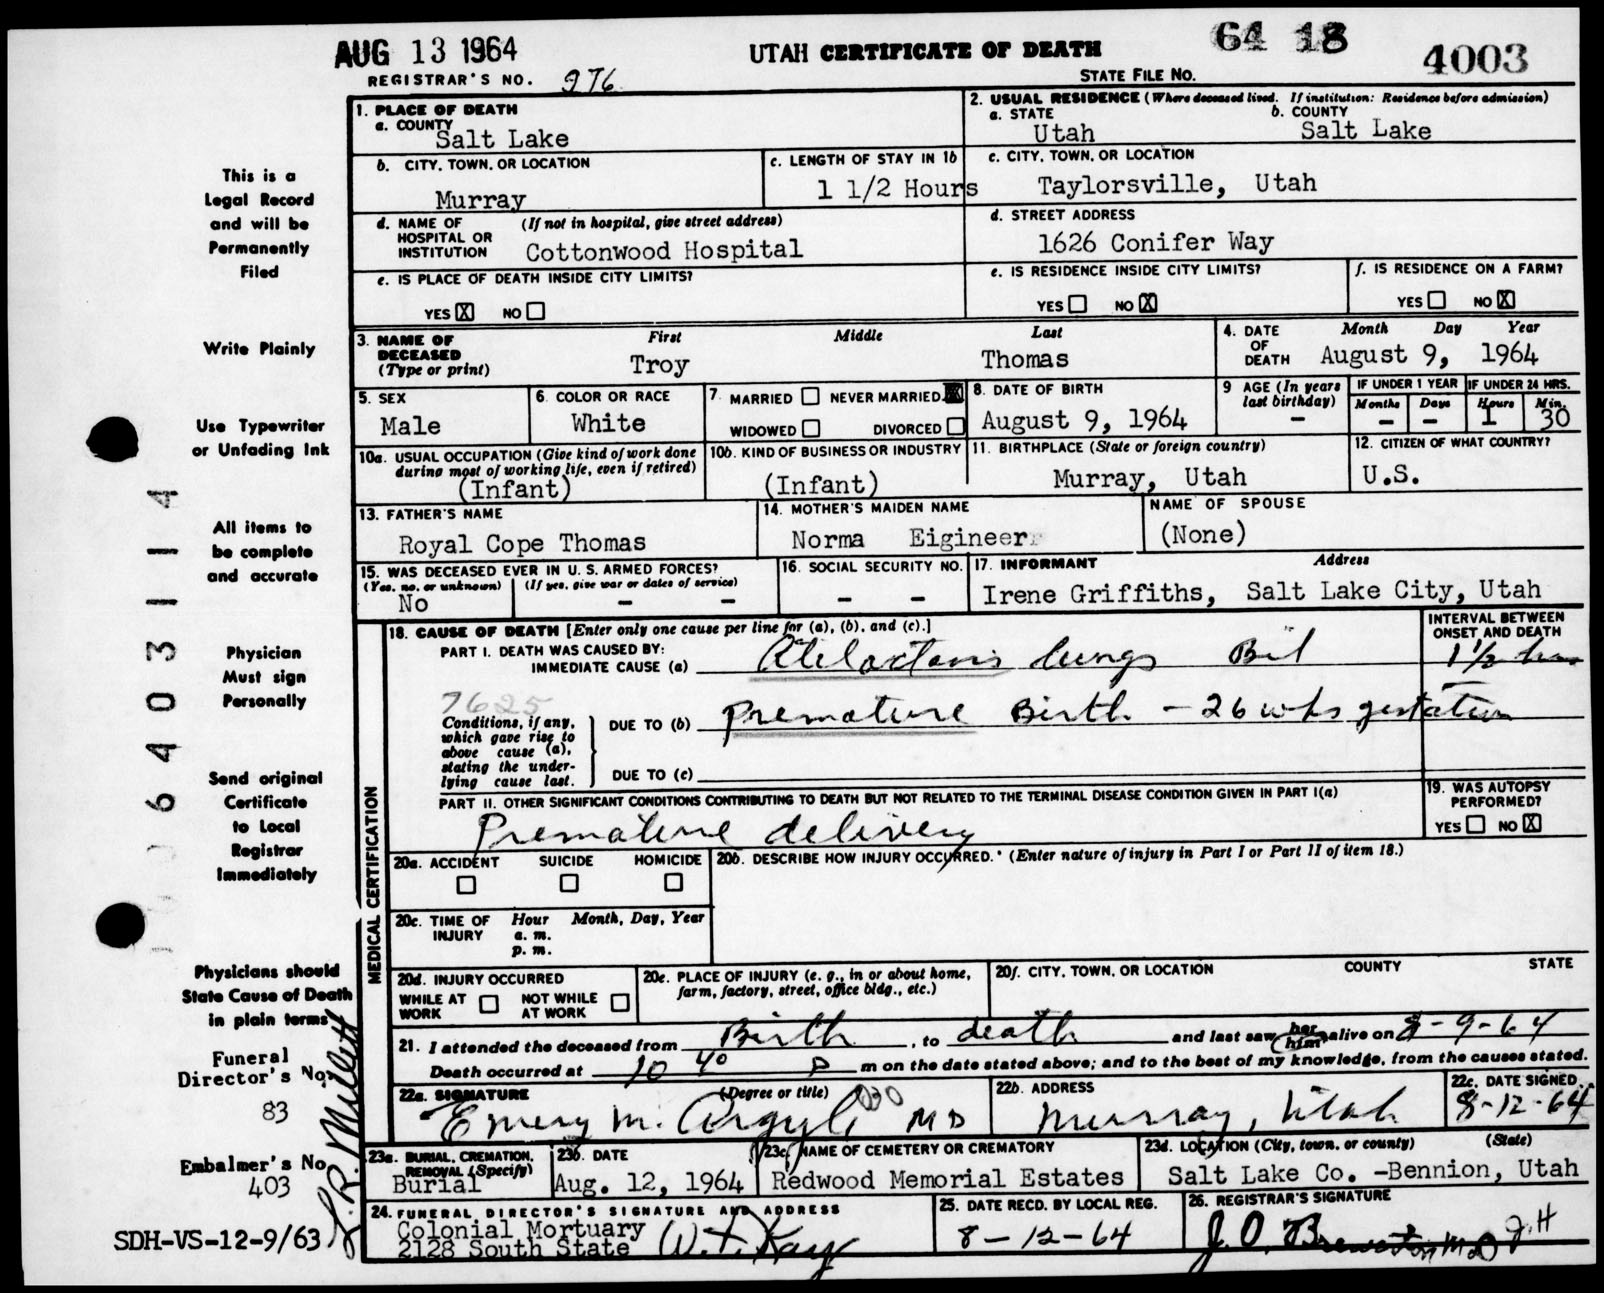 AUG 13 1964
UTAH CERTIFICATE OF DEATH
64 18 4003
REGISTRAR'S NO. 976
STATE FILE NO.
1. PLACE OF DEATH
a. COUNTY
Salt Lake
2. USUAL RESIDENCE (Where deceased lived. If institution: Residence before admission)
a. STATE b. COUNTY
Utah Salt Lake
b. CITY, TOWN, OR LOCATION
Murray
c. LENGTH OF STAY IN 1b
1 1/2 Hours
c. CITY, TOWN, OR LOCATION
Taylorsville, Utah
d. NAME OF HOSPITAL OR INSTITUTION (If not in hospital, give street address)
Cottonwood Hospital
d. STREET ADDRESS
1626 Conifer Way
e. IS PLACE OF DEATH INSIDE CITY LIMITS?
YES X NO
e. IS RESIDENCE INSIDE CITY LIMITS?
YES NO X
f. IS RESIDENCE ON A FARM?
YES NO X
3. NAME OF DECEASED (Type or print)
First Middle Last
Troy Thomas
4. DATE OF DEATH
Month Day Year
August 9, 1964
5. SEX
Male
6. COLOR OR RACE
White
7. MARRIED NEVER MARRIED X
WIDOWED DIVORCED
8. DATE OF BIRTH
August 9, 1964
9 AGE (In years last birthday)
-
IF UNDER 1 YEAR
Months Days
- -
IF UNDER 24 HRS.
Hours Min.
1 30
10a. USUAL OCCUPATION (Give kind of work done during most of working life, even if retired)
(Infant)
10b. KIND OF BUSINESS OR INDUSTRY
(Infant)
11. BIRTHPLACE (State or foreign country)
Murray, Utah
12. CITIZEN OF WHAT COUNTRY?
U.S.
13. FATHER'S NAME
Royal Cope Thomas
14. MOTHER'S MAIDEN NAME
Norma Eigineer
NAME OF SPOUSE
(None)
15. WAS DECEASED EVER IN U. S. ARMED FORCES?
(Yes, no, or unknown) (If yes, give war or dates of service)
No - -
16. SOCIAL SECURITY NO.
- -
17. INFORMANT Address
Irene Griffiths, Salt Lake City, Utah
18. CAUSE OF DEATH [Enter only one cause per line for (a), (b), and (c).]
INTERVAL BETWEEN ONSET AND DEATH
PART I. DEATH WAS CAUSED BY:
IMMEDIATE CAUSE (a) Atelactasis lungs Bil 1 1/2 hrs
7625
Conditions, if any, which gave rise to above cause (a), stating the underlying cause last.
DUE TO (b) Premature Birth - 26 wks gestation
DUE TO (c)
PART II. OTHER SIGNIFICANT CONDITIONS CONTRIBUTING TO DEATH BUT NOT RELATED TO THE TERMINAL DISEASE CONDITION GIVEN IN PART I(a)
Premature delivery
19. WAS AUTOPSY PERFORMED?
YES NO X
20a. ACCIDENT SUICIDE HOMICIDE
20b. DESCRIBE HOW INJURY OCCURRED. (Enter nature of injury in Part I or Part II of item 18.)
20c. TIME OF INJURY Hour Month, Day, Year
a. m.
p. m.
20d. INJURY OCCURRED
WHILE AT WORK NOT WHILE AT WORK
20e. PLACE OF INJURY (e. g., in or about home, farm, factory, street, office bldg., etc.)
20f. CITY, TOWN, OR LOCATION COUNTY STATE
21. I attended the deceased from Birth, to death and last saw her him alive on 8-9-64
Death occurred at 10 40 P m on the date stated above; and to the best of my knowledge, from the causes stated.
22a. SIGNATURE (Degree or title)
Emery M. Argyle MD
22b. ADDRESS
Murray, Utah
22c. DATE SIGNED
8-12-64
23a. BURIAL, CREMATION, REMOVAL (Specify)
Burial
23b. DATE
Aug. 12, 1964
23c. NAME OF CEMETERY OR CREMATORY
Redwood Memorial Estates
23d. LOCATION (City, town, or county) (State)
Salt Lake Co. -Bennion, Utah
24. FUNERAL DIRECTOR'S SIGNATURE AND ADDRESS
Colonial Mortuary
2128 South State
W. F. Kay
25. DATE RECD. BY LOCAL REG.
8-12-64
26. REGISTRAR'S SIGNATURE
J.H
MEDICAL CERTIFICATION
This is a
Legal Record
and will be
Permanently
Filed
Write Plainly
Use Typewriter
or Unfading Ink
All items to
be complete
and accurate
Physician
Must sign
Personally
Send original
Certificate
to Local
Registrar
Immediately
Physicians should
State Cause of Death
in plain terms
Funeral
Director's No.
83
Embalmer's No.
403
L. R. Millett
SDH-VS-12-9/63